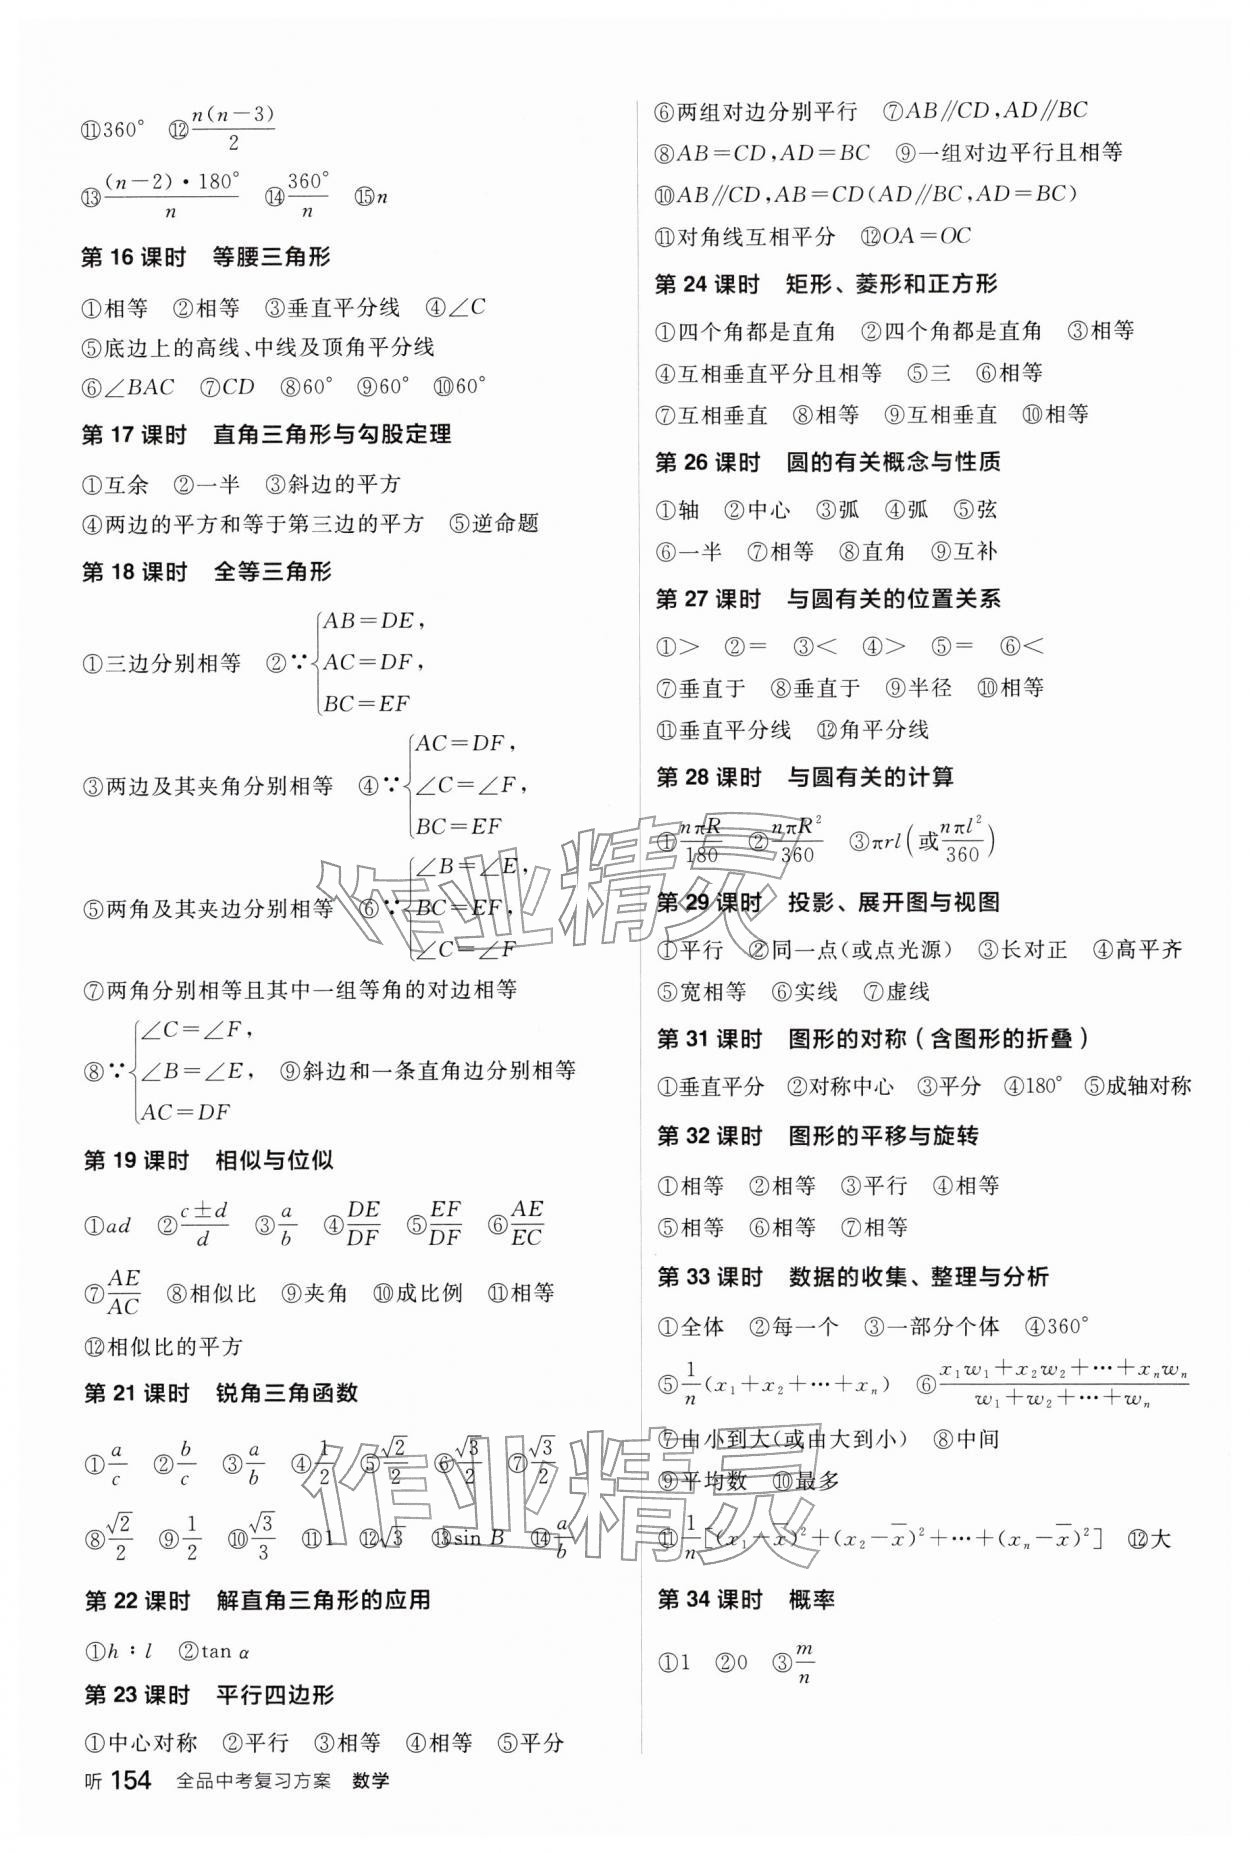 ⑪360° ⑫n(n-3)/2
⑬(n-2)·180°/n ⑭360°/n ⑮n
第16课时 等腰三角形
①相等 ②相等 ③垂直平分线 ④∠C
⑤底边上的高线、中线及顶角平分线
⑥∠BAC ⑦CD ⑧60° ⑨60° ⑩60°
第17课时 直角三角形与勾股定理
①互余 ②一半 ③斜边的平方
④两边的平方和等于第三边的平方 ⑤逆命题
第18课时 全等三角形
①三边分别相等 ②∵{AB=DE,
AC=DF,
BC=EF
③两边及其夹角分别相等 ④∵{AC=DF,
∠C=∠F,
BC=EF
⑤两角及其夹边分别相等 ⑥∵{∠B=∠E,
BC=EF,
∠C=∠F
⑦两角分别相等且其中一组等角的对边相等
⑧∵{∠C=∠F,
∠B=∠E, ⑨斜边和一条直角边分别相等
AC=DF
第19课时 相似与位似
①ad ②c±d/d ③a/b ④DE/DF ⑤EF/DF ⑥AE/EC
⑦AE/AC ⑧相似比 ⑨夹角 ⑩成比例 ⑪相等
⑫相似比的平方
第21课时 锐角三角函数
①a/c ②b/c ③a/b ④1/2 ⑤√2/2 ⑥√3/2 ⑦√3/2
⑧√2/2 ⑨1/2 ⑩√3/3 ⑪1 ⑫√3 ⑬sin B ⑭a/b
第22课时 解直角三角形的应用
①h∶l ②tan α
第23课时 平行四边形
①中心对称 ②平行 ③相等 ④相等 ⑤平分
听 154 全品中考复习方案 数学
⑥两组对边分别平行 ⑦AB∥CD,AD∥BC
⑧AB=CD,AD=BC ⑨一组对边平行且相等
⑩AB∥CD,AB=CD(AD∥BC,AD=BC)
⑪对角线互相平分 ⑫OA=OC
第24课时 矩形、菱形和正方形
①四个角都是直角 ②四个角都是直角 ③相等
④互相垂直平分且相等 ⑤三 ⑥相等
⑦互相垂直 ⑧相等 ⑨互相垂直 ⑩相等
第26课时 圆的有关概念与性质
①轴 ②中心 ③弧 ④弧 ⑤弦
⑥一半 ⑦相等 ⑧直角 ⑨互补
第27课时 与圆有关的位置关系
①> ②= ③< ④> ⑤= ⑥<
⑦垂直于 ⑧垂直于 ⑨半径 ⑩相等
⑪垂直平分线 ⑫角平分线
第28课时 与圆有关的计算
①nπR/180 ②nπR²/360 ③πrl(或nπl²/360)
第29课时 投影、展开图与视图
①平行 ②同一点(或点光源) ③长对正 ④高平齐
⑤宽相等 ⑥实线 ⑦虚线
第31课时 图形的对称(含图形的折叠)
①垂直平分 ②对称中心 ③平分 ④180° ⑤成轴对称
第32课时 图形的平移与旋转
①相等 ②相等 ③平行 ④相等
⑤相等 ⑥相等 ⑦相等
第33课时 数据的收集、整理与分析
①全体 ②每一个 ③一部分个体 ④360°
⑤1/n(x₁+x₂+⋯+xₙ) ⑥x₁w₁+x₂w₂+⋯+xₙwₙ/w₁+w₂+⋯+wₙ
⑦由小到大(或由大到小) ⑧中间
⑨平均数 ⑩最多
⑪1/n[(x₁-x̄)²+(x₂-x̄)²+⋯+(xₙ-x̄)²] ⑫大
第34课时 概率
①1 ②0 ③m/n
作业精灵
作业精灵